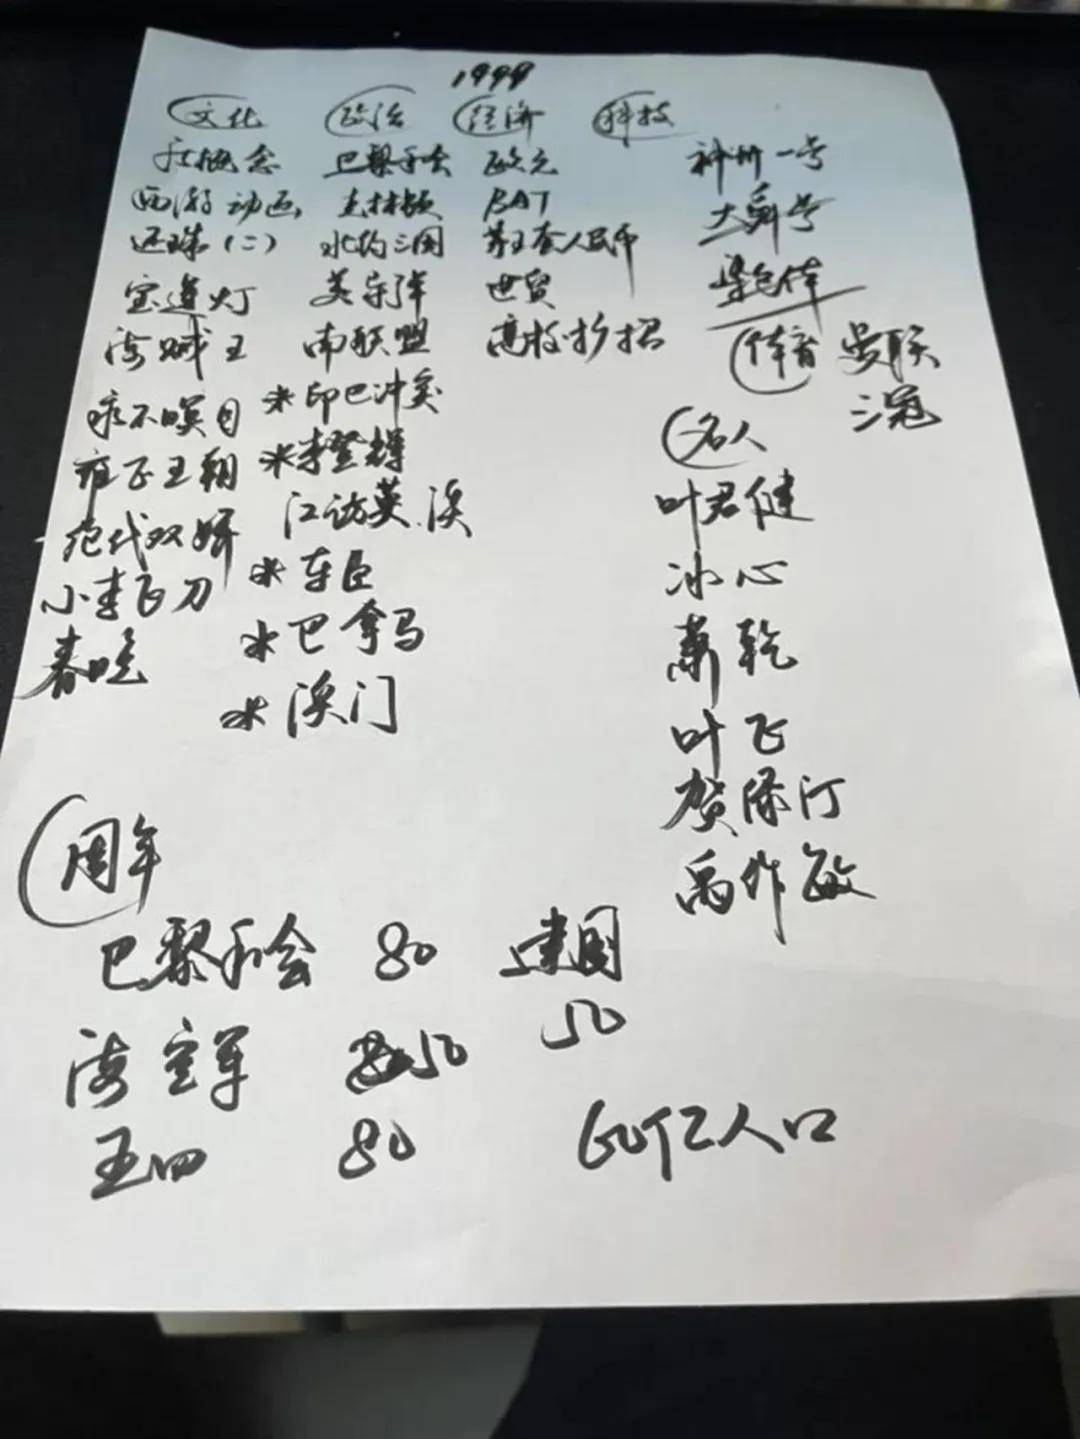 1999
文化 政治 经济 科技
新概念 巴黎和会 欧元 神州一号
西游动画 克林顿 BAT 大舜号
还珠(二) 北约三国 第五套人民币 梁思伟
宝莲灯 美导弹 世贸
海贼王 南联盟 高校扩招 体育 曼联
三冠
永不瞑目 *印巴冲突
雍正王朝 *李登辉
绝代双娇 江访英.澳
小李飞刀 *车臣
春晚 *巴拿马
*澳门
名人
叶君健
冰心
萧乾
叶飞
贺绿汀
禹作敏
周年
巴黎和会 80 建国
50
海空军 50
五四 80 60亿人口